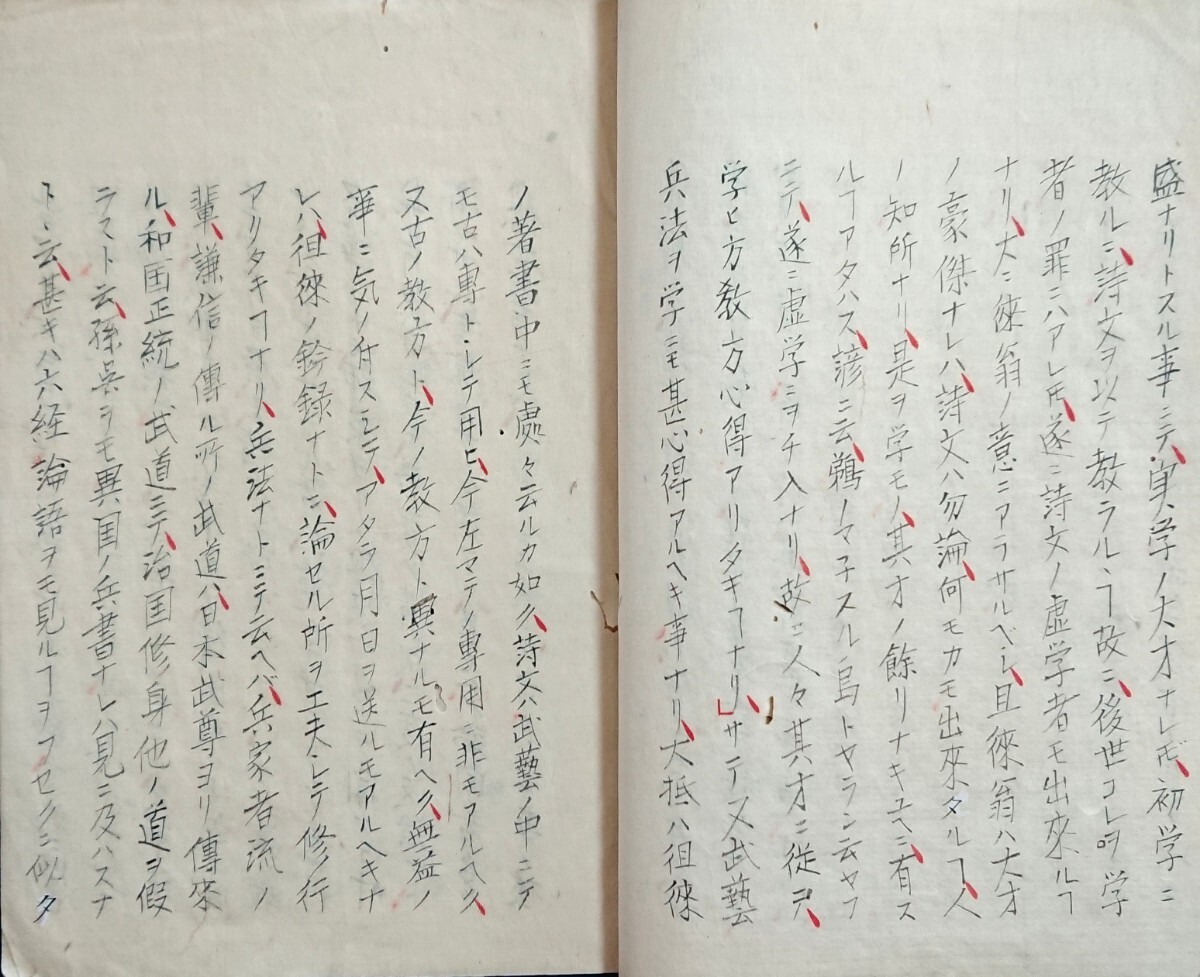 盛ナリトスル事ニテ、実学ノ大才ナレ𪜈、初学ニ
教ルニ、詩文ヲ以テ教ラルヽヿ故ニ、後世コレヲ学
者ノ罪ニハアレ𪜈、遂ニ詩文ノ虚学者モ出来ルヿ
ナリ、大ニ徠翁ノ意ニアラサルベシ、且徠翁ハ大才
ノ豪傑ナレハ、詩文ハ勿論、何モカモ出来タルヿ、人
ノ知所ナリ、是ヲ学モノ、其才ノ餘リナキユヘニ、有ス
ルヿアタハス、諺ニ云、鵜ノマネスル烏トヤラン云ヤフ
ニテ、遂ニ虚学ニヲチ入ナリ、故ニ人々其才ニ従テ、
学ヒ方教方心得アリタキヿナリ、」サテ又武藝
兵法ヲ学ニモ甚心得アルヘキ事ナリ、大抵ハ徂徠
ノ著書中ニモ處々云ルカ如ク、詩文ハ武藝ノ中ニテ
モ古ハ專トシテ用ヒ、今左マテノ専用ニ非モアルヘク、
又古ノ教方ト、今ノ教方ト異ナルモ有ヘク、無益ノ
事ニ気ノ付スシテ、アタラ月日ヲ送ルモアルヘキナ
レハ、徂徠ノ鈐録ナトニ、論セル所ヲ工夫シテ修行
アリタキヿナリ、兵法ナトニテ云ヘバ、兵家者流ノ
輩、謙信ノ傳ル所ノ武道ハ、日本武尊ヨリ傳来
ル、和国正統ノ武道ニテ、治国修身他ノ道ヲ假
ラマト云、孫呉ヲモ異国ノ兵書ナレハ見ニ及ハスナ
ト云、甚キハ六経論語ヲモ見ルヿヲフセクニ似タ